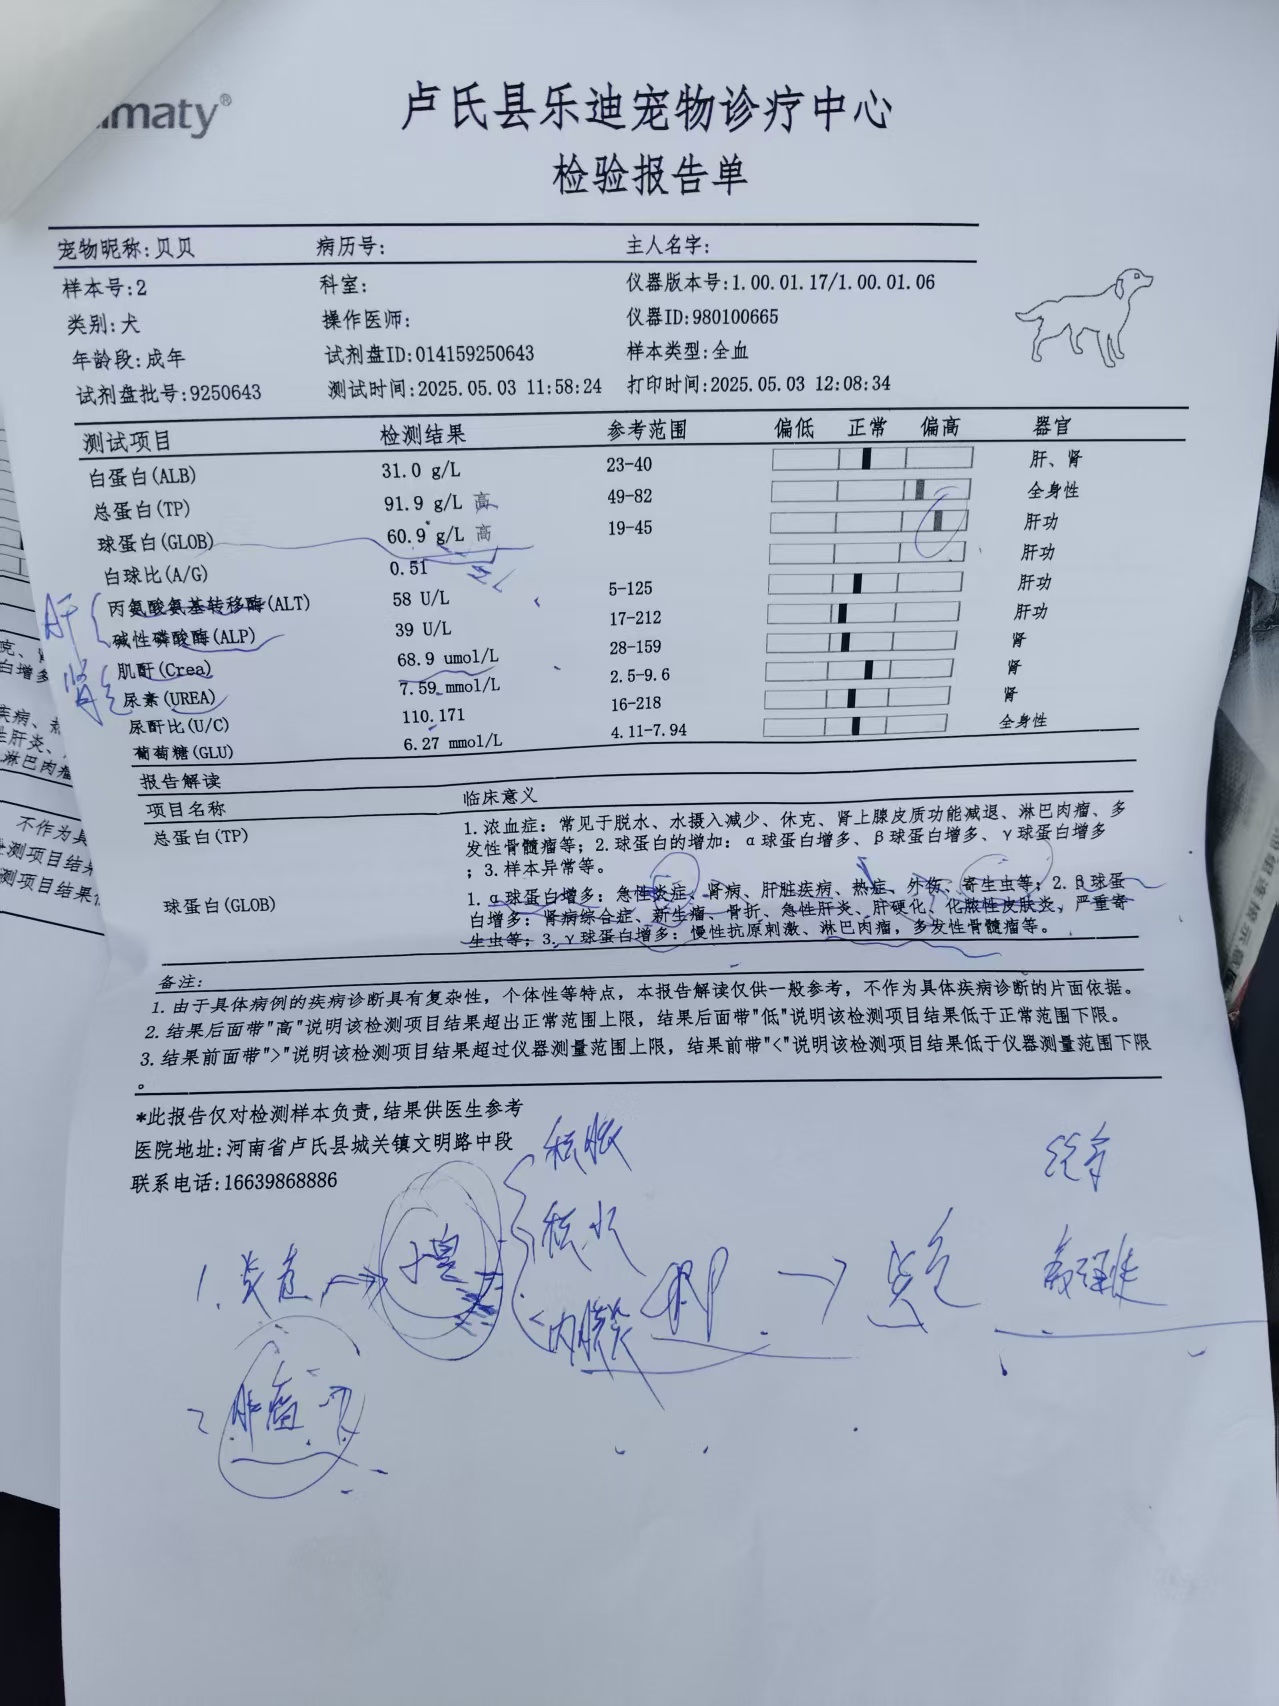 maty®
卢氏县乐迪宠物诊疗中心
检验报告单
宠物昵称:贝贝 病历号: 主人名字:
样本号:2 科室: 仪器版本号:1.00.01.17/1.00.01.06
类别:犬 操作医师: 仪器ID:980100665
年龄段:成年 试剂盘ID:014159250643 样本类型:全血
试剂盘批号:9250643 测试时间:2025.05.03 11:58:24 打印时间:2025.05.03 12:08:34
测试项目 检测结果 参考范围 偏低 正常 偏高 器官
白蛋白(ALB) 31.0 g/L 23-40 肝、肾
总蛋白(TP) 91.9 g/L 高 49-82 全身性
球蛋白(GLOB) 60.9 g/L 高 19-45 肝功
白球比(A/G) 0.51 肝功
丙氨酸氨基转移酶(ALT) 58 U/L 5-125 肝功
碱性磷酸酶(ALP) 39 U/L 17-212 肝功
肌酐(Crea) 68.9 umol/L 28-159 肾
尿素(UREA) 7.59 mmol/L 2.5-9.6 肾
尿酐比(U/C) 110.171 16-218 肾
葡萄糖(GLU) 6.27 mmol/L 4.11-7.94 全身性
肝
肾
报告解读
项目名称 临床意义
总蛋白(TP) 1.浓血症: 常见于脱水、水摄入减少、休克、肾上腺皮质功能减退、淋巴肉瘤、多
发性骨髓瘤等; 2.球蛋白的增加: α球蛋白增多、β球蛋白增多、γ球蛋白增多
; 3.样本异常等。
球蛋白(GLOB) 1.α球蛋白增多: 急性炎症、肾病、肝脏疾病、热症、外伤、寄生虫等; 2.β球蛋
白增多: 肾病综合症、新生瘤、骨折、急性肝炎、肝硬化、化脓性皮肤炎, 严重寄
生虫等; 3.γ球蛋白增多: 慢性抗原刺激、淋巴肉瘤, 多发性骨髓瘤等。
备注:
1.由于具体病例的疾病诊断具有复杂性, 个体性等特点, 本报告解读仅供一般参考, 不作为具体疾病诊断的片面依据。
2.结果后面带"高"说明该检测项目结果超出正常范围上限, 结果后面带"低"说明该检测项目结果低于正常范围下限。
3.结果前面带">"说明该检测项目结果超过仪器测量范围上限, 结果前带"<"说明该检测项目结果低于仪器测量范围下限
。
*此报告仅对检测样本负责,结果供医生参考
医院地址:河南省卢氏县城关镇文明路中段
联系电话:16639868886
积脓
积水
内膜炎
1.炎症
2 肿瘤